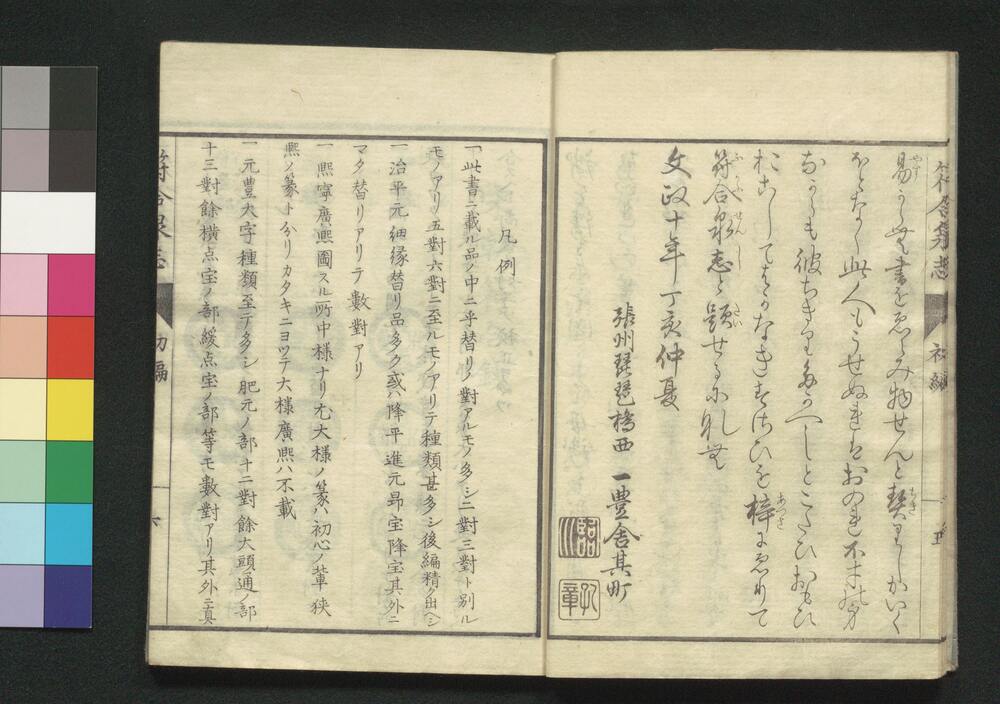 符合泉志
初編
五
易からむ書をゑらみ物せんと契りしかいく
ほとなく此人もうせぬきはおのれ不才の身
ながらも彼ちきりたかへしとこたひおもひ
おこしてはかなきすさひを梓にゑりて
符合泉志と題せるになむ
文政十年丁亥仲夏
張州琵琶橋西 一豊舎其町
凡例
一此書ニ載ル品ノ中ニ手替リノ對アルモノ多シ二對三對ト別ル
モノアリ五對六對ニ至ルモノアリテ種類甚多シ後編精ク出ヘシ
一治平元細縁替リ品多ク或ハ降平進元昻宝降宝其外ニ
マタ替リアリテ數對アリ
一熙寧廣熙圖スル所中様ナリ尤大様ノ篆ハ初心ノ輩狭
熙ノ篆ト分リカタキニヨツテ大様廣熙ハ不載
一元豊大字種類至テ多シ肥元ノ部十二對餘大頭通ノ部
十三對餘横点宝ノ部緩点宝ノ部等モ數對アリ其外ニ真
符合泉志
初編
六